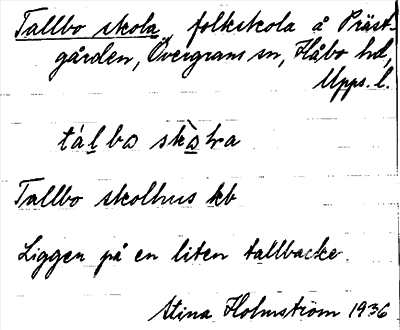 Tallbo skola, folkskola å Präst-
gården, Övergrans sn, Håbo hd,
Upps. l.
tálbo skòla
Tallbo skolhus kb
Ligger på en liten tallbacke.
Stina Holmström 1936